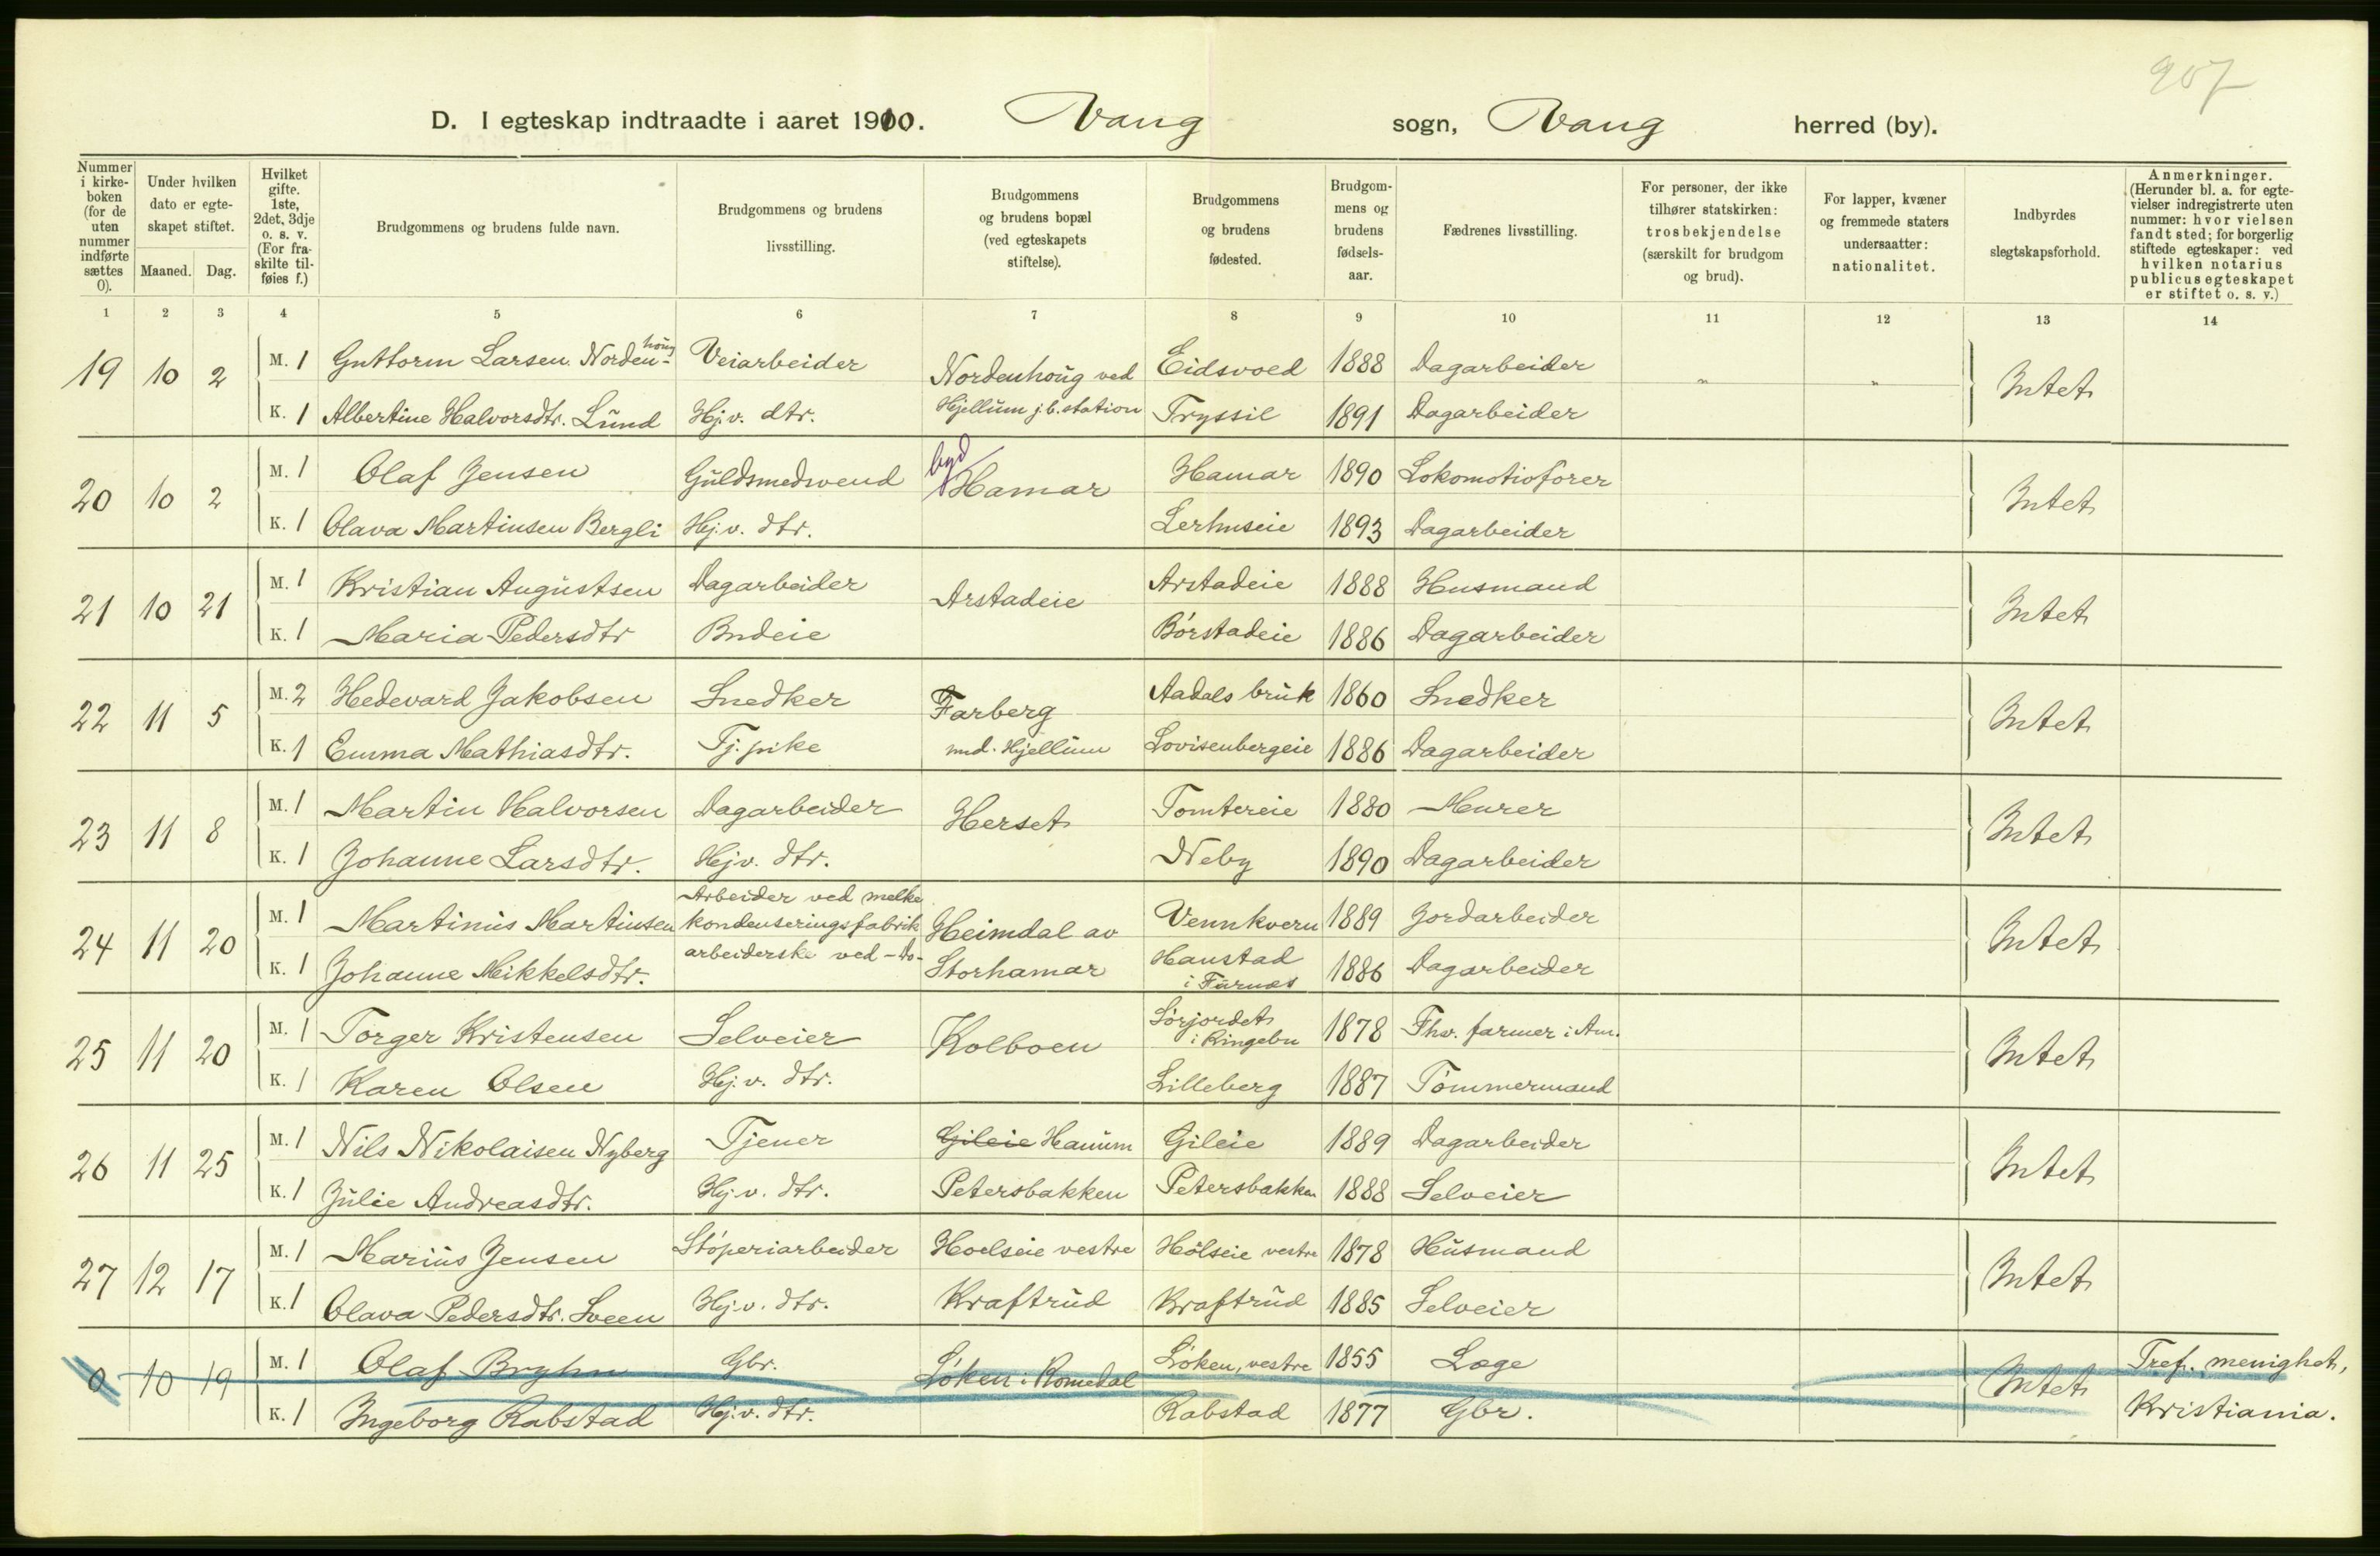 907
D. I egteskap indtraadte i aaret 1910. Vang sogn, Vang herred (by).
Nummer i kirke-boken (for de uten nummer indførte sættes 0).
Under hvilken dato er egte-skapet stiftet.
Maaned. Dag.
Hvilket gifte. 1ste, 2det, 3dje o. s. v. (For fra-skilte til-føies f.)
Brudgommens og brudens fulde navn.
Brudgommens og brudens livsstilling.
Brudgommens og brudens bopæl (ved egteskapets stiftelse).
Brudgommens og brudens fødested.
Brudgom-mens og brudens fødsels-aar.
Fædrenes livsstilling.
For personer, der ikke tilhører statskirken: trosbekjendelse (særskilt for brudgom og brud).
For lapper, kvæner og fremmede staters undersaatter: nationalitet.
Indbyrdes slegtskapsforhold.
Anmerkninger. (Herunder bl. a. for egte-vielser indregistrerte uten nummer: hvor vielsen fandt sted; for borgerlig stiftede egteskaper: ved hvilken notarius publicus egteskapet er stiftet o. s. v.)
1 2 3 4 5 6 7 8 9 10 11 12 13 14
19 10 2 M. 1 Guttorm Larsen Norden-houg Veiarbeider Nordenhoug ved Eidsvold 1888 Dagarbeider " " Intet
K. 1 Albertine Halvorsdtr. Lund Hj. v. dtr. Hjellum j.b. station Tryssil 1891 Dagarbeider
20 10 2 M. 1 Olaf Jensen Guldsmedsvend byd Hamar Hamar 1890 Lokomotivfører Intet
K. 1 Olava Martinsen Bergli Hj. v. dtr. Lerhuseie 1893 Dagarbeider
21 10 21 M. 1 Kristian Augustsen Dagarbeider Arstadeie Arstadeie 1888 Husmand Intet
K. 1 Maria Pedersdtr Budeie Børstadeie 1886 Dagarbeider
22 11 5 M. 2 Hedevard Jakobsen Snedker Farberg Aadals bruk 1860 Snedker Intet
K. 1 Emma Mathiasdtr. Tj. pike und. Hjellum Lovisenbergeie 1886 Dagarbeider
23 11 8 M. 1 Martin Halvorsen Dagarbeider Herset Tomtereie 1880 Murer Intet
K. 1 Johanne Larsdtr. Hj. v. dtr. Neby 1890 Dagarbeider
24 11 20 M. 1 Martinius Martinsen Arbeider ved melke kondenseringsfabrik Heimdal av Vennkvern 1889 Jordarbeider Intet
K. 1 Johanne Mikkelsdtr. arbeiderske ved -do- Storhamar Hanstad i Furnes 1886 Dagarbeider
25 11 20 M. 1 Torger Kristensen Selveier Kolboen Sørjordet i Ringebu 1878 Fhv. farmer i Am. Intet
K. 1 Karen Olsen Hj. v. dtr. Lilleberg 1887 Tømmermand
26 11 25 M. 1 Nils Nikolaisen Nyberg Tjener Gileie Hanum Gileie 1889 Dagarbeider Intet
K. 1 Julie Andreasdtr. Hj. v. dtr. Petersbakken Petersbakken 1888 Selveier
27 12 17 M. 1 Marius Jensen Støperiarbeider Hoelseie vestre Hølseie vestre 1878 Husmand Intet
K. 1 Olava Pedersdtr. Sveen Hj. v. dtr. Kraftrud Kraftrud 1885 Selveier
0 10 19 M. 1 Olaf Bryhn Gbr. Løken i Romedal Løken, vestre 1855 Læge Intet Tref. menighet,
K. 1 Ingeborg Rabstad Hj. v. dtr. Rabstad 1877 Gbr. Kristiania.